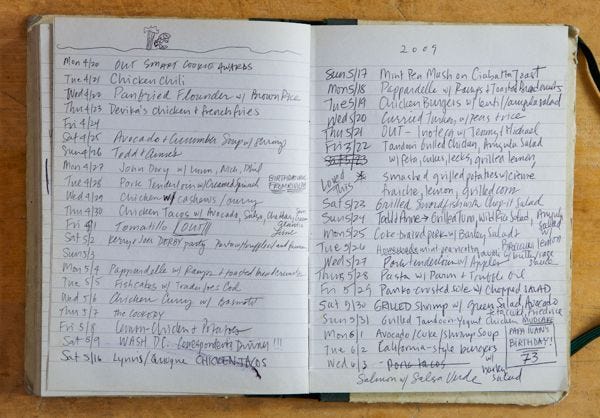 Mon 4/20 OUT SMART COOKIE AWARDS
Tue 4/21 Chicken Chili
Wed 4/22 Panfried Flounder w/ Brown Rice
Thu 4/23 Devika's chicken + french fries
Fri 4/24
Sat 4/25 Avocado + Cucumber Soup w/ shrimp
Sun 4/26 Todd + Anne's
Mon 4/27 John Dory w/ Lynn, Nick, Phil
Tue 4/28 Pork Tenderloin w/ Creamed Spinach
Wed 4/29 Chicken w/ cashews/curry
Thu 4/30 Chicken Tacos w/ Avocado, Salsa, Cheddar, Sour Cream
Fri Tomatillo OUT
Sat 5/2 Kerry + Joe DERBY party
Sun 5/3
Mon 5/4 Pappardelle w/ Ramps + toasted breadcrumbs
Tue 5/5 Fishcakes w/ Trader Joes Cod
Wed 5/6 Chicken Curry w/ Basmati
Thu 5/7 the COOKERY
Fri 5/8 Lemon-Chicken + Potatoes
Sat 5/9 WASH DC. Correspondents Dinner!!!
Sat 5/16 Lynn's/ CHICKEN TACOS
2009
Sun 5/17 Mint Pea Mash on Ciabatta Toast
Mon 5/18 Pappardelle w/ Ramps + Toasted Breadcrumbs
Tue 5/19 Chicken Burgers w/ arugula salad
Wed 5/20 Curried Turkey w/ Peas + rice
Thu 5/21 OUT - w/ Jenny + Michael
Fri 5/22 Tandoori Grilled Chicken, Arugula Salad
w/ feta, cukes, leeks, grilled lemon
Loved this * smashed grilled potatoes w/ creme
fraiche, lemon, grilled corn
Sat 5/23 Grilled Swordfish + salad
Sun 5/24 Todd/Anne → Grilled Tuna, Salad,
Mon 5/25 Coke braised pork w/ Barley Salad
Tue 5/26
Wed 5/27 Pork tenderloin w/ Apples
Thurs 5/28 Pasta w/ Parm + Truffle Oil
Fri 5/29 Panko crusted sole w/ Chopped SALAD
Sat 5/30 GRILLED Shrimp w/ Green Salad, Avocado
Sun 5/31 Grilled Tandoori-Yogurt Chicken
Mon 6/1 Avocado/Cuke/shrimp Soup
Tue 6/2 California-style burgers
Wed 6/3 Pork Tacos w/ barley salad
PAPA IVAN'S
BIRTHDAY!
73
Salmon w/ Salsa Verde